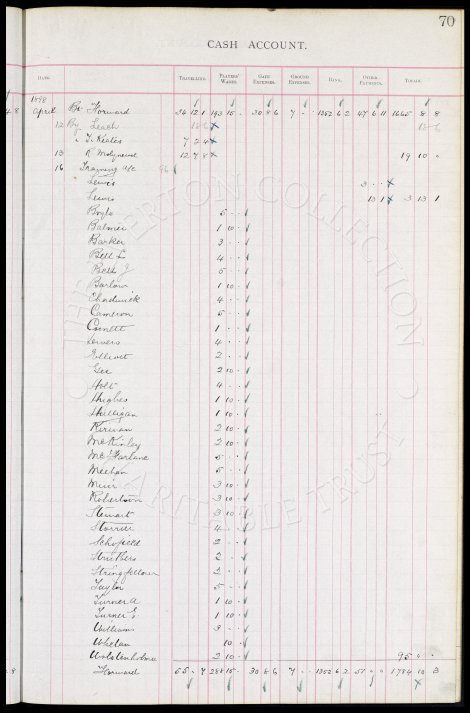 70
CASH ACCOUNT.
DATE. TRAVELLING. PLAYERS' WAGES. GATE EXPENSES. GROUND EXPENSES. BANK. OTHER PAYMENTS. TOTALS.
1898
April Bt Forward 36 12 1 193 15 - 30 8 6 7 - - 1352 6 2 47 6 11 1665 8 8
12 By Leach 18 6 18 6
" T. Keates 7 2 4
13 R Molyneux 12 7 8 19 10 0
16 Training a/c
Lewis 3 - -
Lewis 13 1 3 13 1
Boyle 5 - -
Balmer 1 10 -
Barker 3 - -
Bell L 4 - -
Bell J 5 - -
Barlow 1 10 -
Chadwick 4 - -
Cameron 5 - -
Connett 1 - -
Devers 4 - -
Elliott 2 - -
Gee 2 10 -
Holt 4 - -
Hughes 1 10 -
Hulligan 1 10 -
Kirwan 2 10 -
McKinley 2 10 -
McFarlane 5 - -
Meehan 5 - -
Muir 3 10 -
Robertson 3 10 -
Stewart 3 10 -
Storrier 4 - -
Schofield 2 - -
Struthers 2 - -
Stringfellow 2 - -
Taylor 5 - -
Turner A 1 10 -
Turner S 1 10 -
Williams 3 - -
Whelan 10 -
Wolstenholme 2 10 - 95 0 -
Forward 55 - 7 288 15 - 30 8 6 7 - - 1352 6 2 51 0 0 1784 10 3
THE EVERTON COLLECTION
CHARITABLE TRUST